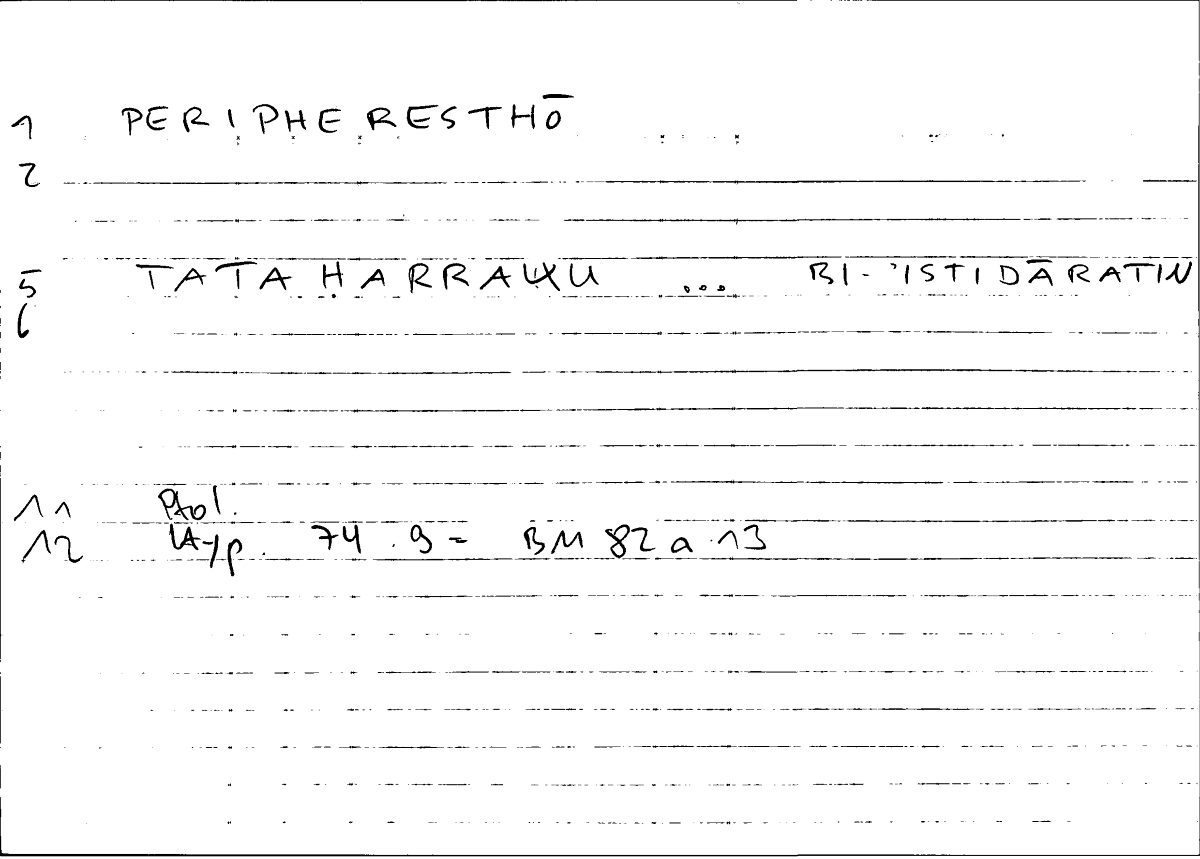 1 PERIPHERESTHŌ
2
5 TATAḤARRAKU ... BI-'ISTIDĀRATIN
6
11 Ptol.
12 Hyp. 74.9 = BM 82a 13